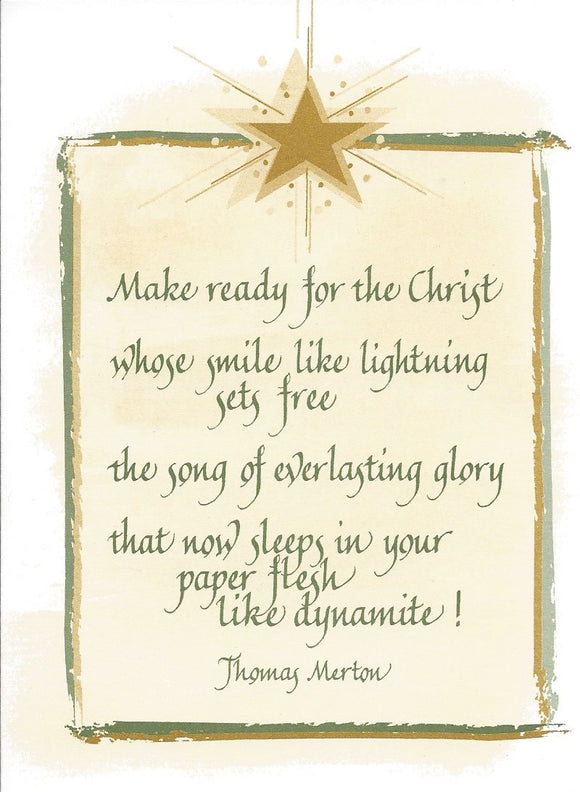 Make ready for the Christ
whose smile like lightning
sets free
the song of everlasting glory
that now sleeps in your
paper flesh
like dynamite!
Thomas Merton